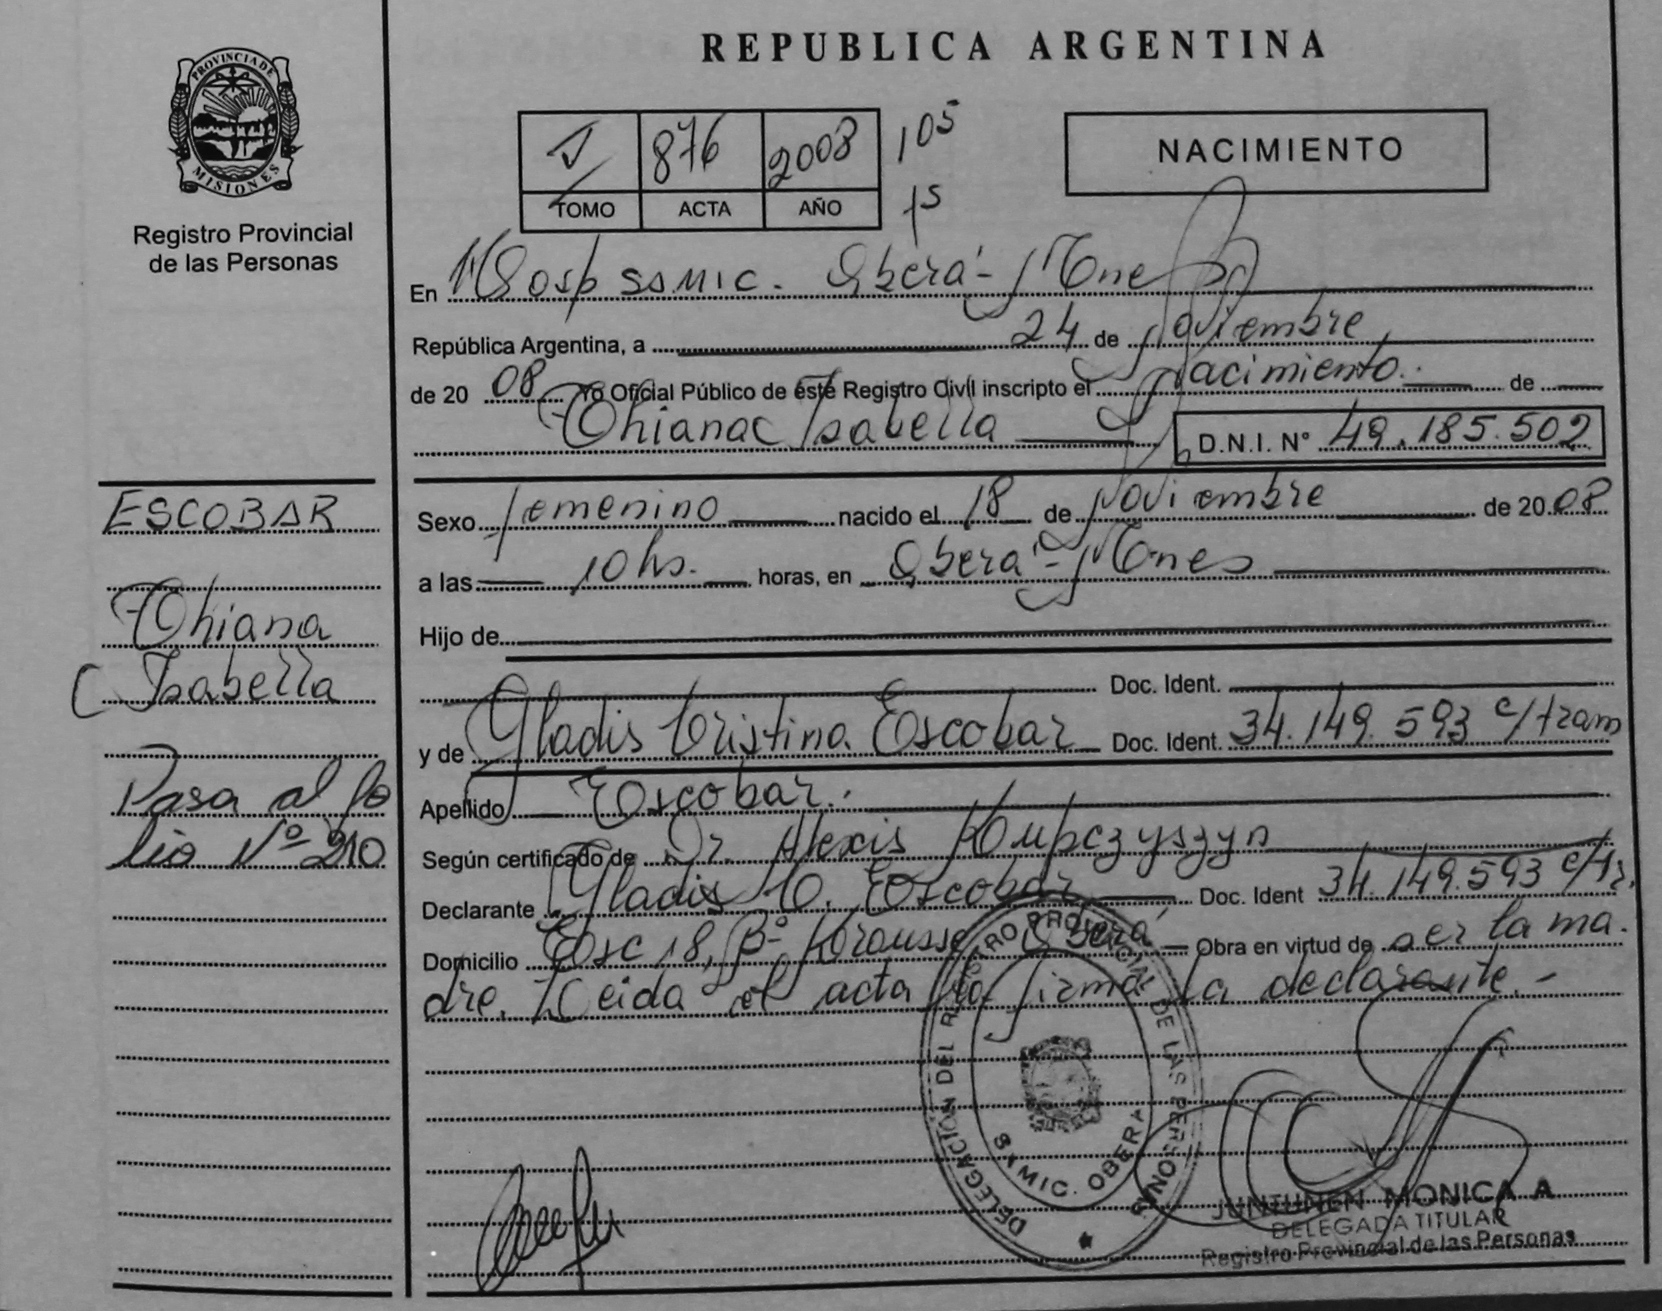 REPUBLICA ARGENTINA
PROVINCIA DE
MISIONES
Registro Provincial
de las Personas
876 2008 105
TOMO ACTA AÑO 15
NACIMIENTO
En Hosp SAMIC. Oberá - Mnes
República Argentina, a 24 de Noviembre
de 20 08 Yo Oficial Público de este Registro Civil inscripto el Nacimiento. de
Thiana Isabella D.N.I. N° 49.185.502
ESCOBAR
Thiana
Isabella
Pasa al fo
lio Nº 210
Sexo femenino nacido el 18 de Noviembre de 20 08
a las 10 hs. horas, en Oberá - Mnes
Hijo de
Doc. Ident.
y de Gladis Cristina Escobar Doc. Ident. 34.149.593 c/tram
Apellido Escobar.
Según certificado de Dr. Alexis Kupczyszyn
Declarante Gladis C. Escobar Doc. Ident 34.149.593 c/tr.
Domicilio Esc 18, Bº Krausse Oberá Obra en virtud de ser la ma
dre. Leida el acta la firma la declarante.-
DELEGACIÓN DEL REGISTRO PROVINCIAL DE LAS PERSONAS
SAMIC. OBERA
JUNTUNEN MONICA A
DELEGADA TITULAR
Registro Provincial de las Personas